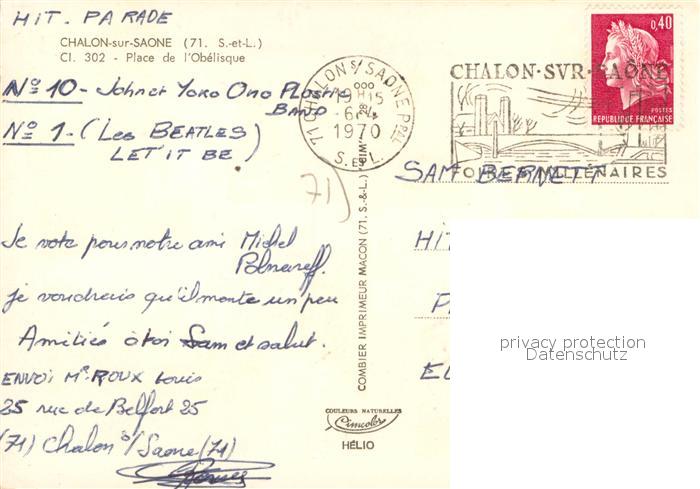 HIT. PARADE
CHALON-sur-SAONE (71. S.-et-L.)
Cl. 302 - Place de l'Obélisque
Nº 10 - John et Yoko Ono Plastic
Band
Nº 1 - (Les BEATLES)
LET IT BE)
71 CHALON S/ SAONE PPAL
19H15
6-4
1970
S. ET L.
CHALON·SVR·SAÔNE
FOIRES MILLÉNAIRES
0,40
POSTES
REPUBLIQUE FRANÇAISE
71)
SAM BERNETT
HIT
P
Je vote pour notre ami Michel
Polnareff.
je voudrais qu'il monte un peu
Amitiés à toi Sam et salut.
ENVOI Mr. ROUX Louis
25 rue de Belfort 25
(71) Chalon s/Saone (71)
COMBIER IMPRIMEUR MACON (71. S.-&-L.)
COULEURS NATURELLES
Cimcolor
HÉLIO
privacy protection
Datenschutz